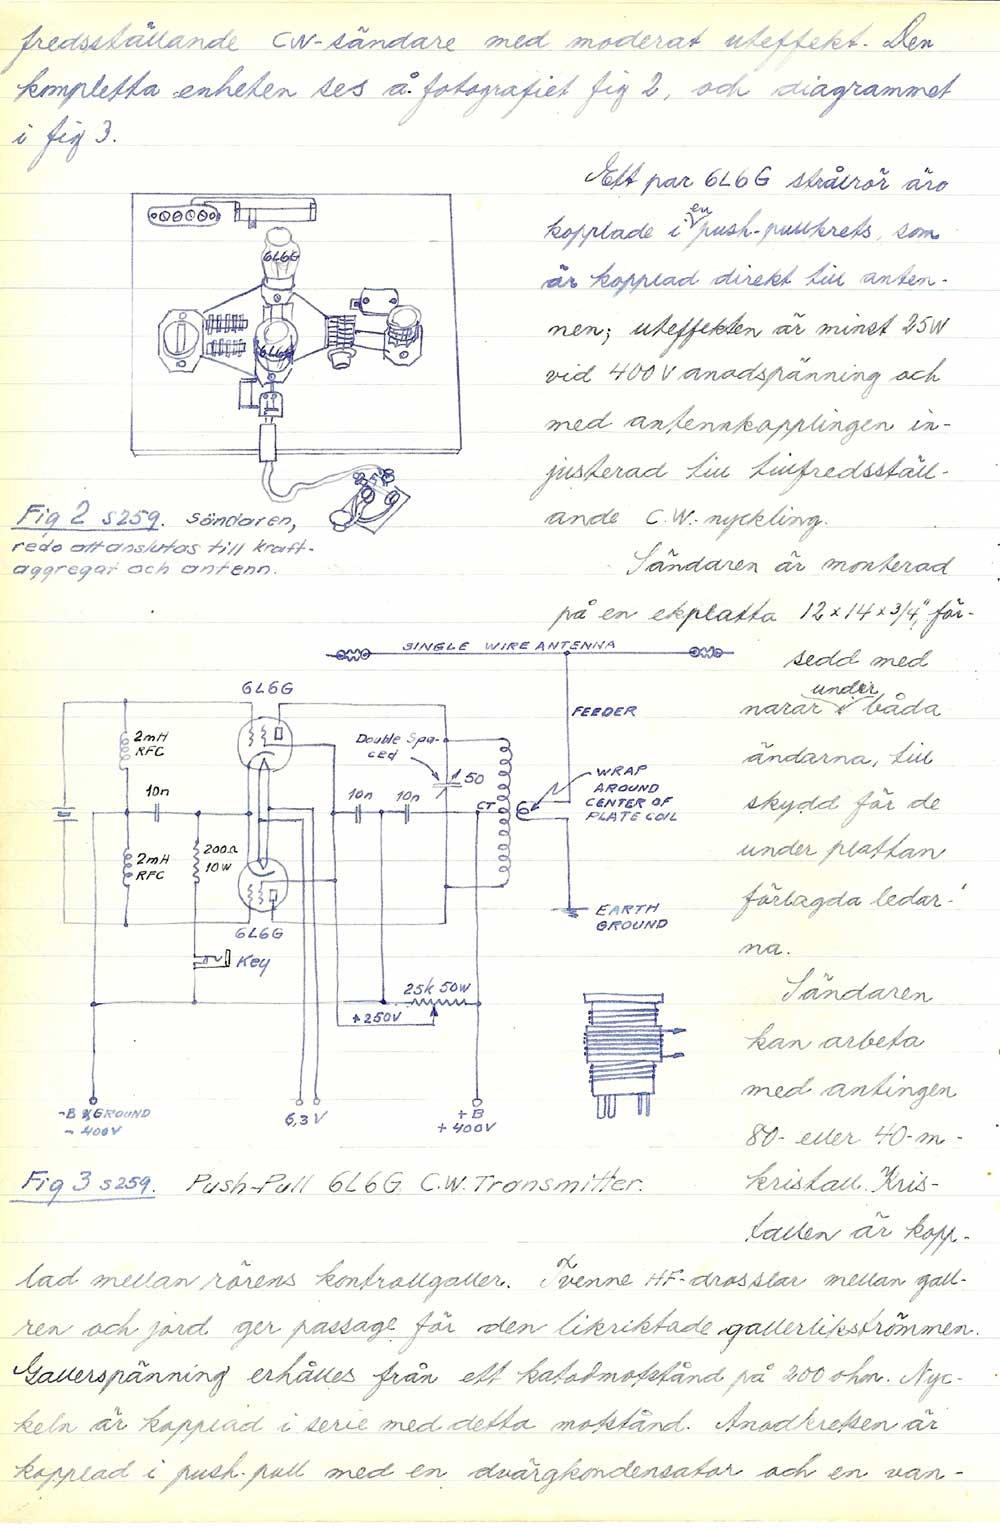 fredsställande CW-sändare med moderat uteffekt. Den
kompletta enheten ses å fotografiet fig 2, och diagrammet
i fig 3.
6L6G
6L6G
Fig 2 s259. Sändaren,
redo att anslutas till kraft-
aggregat och antenn.
Ett par 6L6G strålrör äro
kopplade i en push-pullkrets, som
är kopplad direkt till anten-
nen; uteffekten är minst 25W
vid 400V anodspänning och
med antennkopplingen in-
justerad till tillfredsställ-
ande C.W.-nyckling.
Sändaren är monterad
på en ekplatta 12x14x3/4", för-
sedd med
narar under båda
ändarna, till
skydd för de
under plattan
förlagda ledar-
na.
Sändaren
kan arbeta
med antingen
80- eller 40-m-
kristall. Kris-
tallen är kopp-
SINGLE WIRE ANTENNA
6L6G
FEEDER
2mH
RFC
Double Spa-
ced
50
10n
10n
10n
CT
WRAP
AROUND
CENTER OF
PLATE COIL
2mH
RFC
200Ω
10W
6L6G
EARTH
GROUND
Key
25k 50W
+250V
-B & GROUND
- 400V
6,3V
+B
+400V
Fig 3 s259. Push-Pull 6L6G C.W. Transmitter.
lad mellan rörens kontrollgaller. Tvenne HF-drosslar mellan gall-
ren och jord ger passage för den likriktade gallerlikströmmen.
Gallerspänning erhålles från ett katodmotstånd på 200 ohm. Nyc-
keln är kopplad i serie med detta motstånd. Anodkretsen är
kopplad i push-pull med en dvärgkondensator och en van-